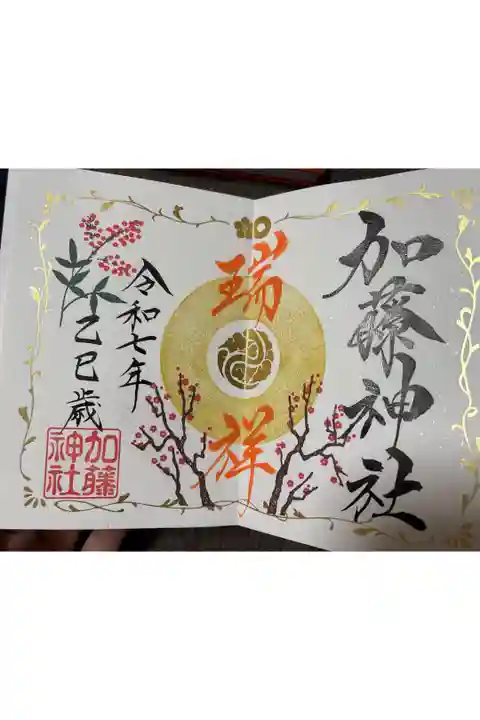 加藤神社
加
瑞祥
令和七年
乙巳歳
加藤
神社